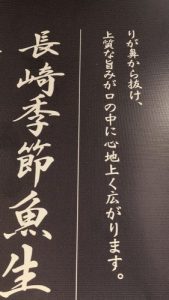 りが鼻から抜け、
上質な旨みが口の中に心地よく広がります。
長崎季節魚生